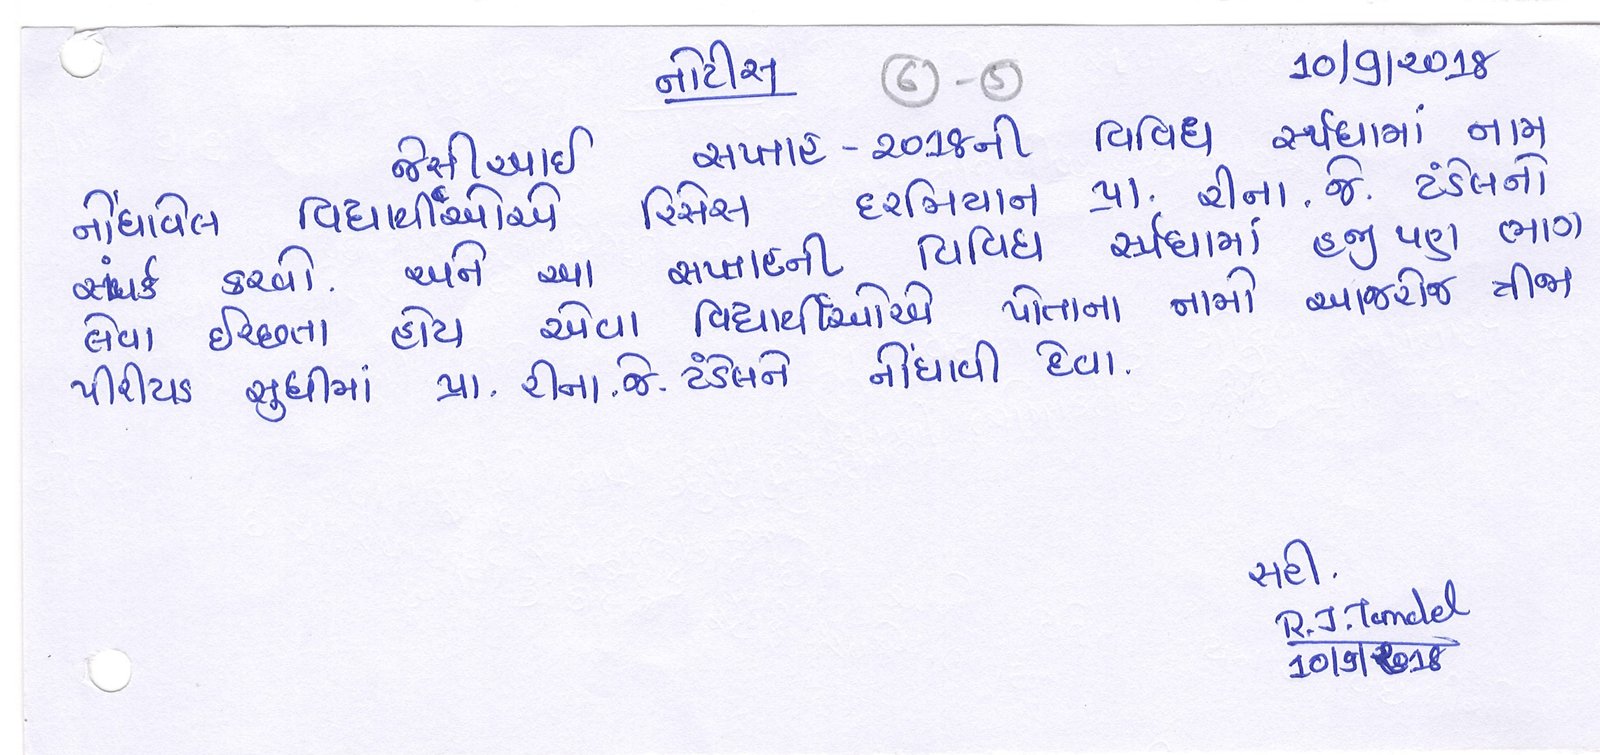 નોટીસ ⑥ - ⑤ 10/9/2018
જેસીઆઈ સપ્તાહ - ૨૦૧૪ની વિવિધ સ્પર્ધામાં નામ
નોંધાવેલ વિદ્યાર્થીઓએ રિસેસ દરમિયાન પ્રા. રીના.જે. ટંડેલનો
સંપર્ક કરવો. અને આ સપ્તાહની વિવિધ સ્પર્ધામાં હજી પણ ભાગ
લેવા ઈચ્છતા હોય એવા વિદ્યાર્થીઓએ પોતાના નામો આજરોજ ત્રીજા
પીરીયડ સુધીમાં પ્રા. રીના.જે. ટંડેલને નોંધાવી દેવા.
સહી.
R.J.Tandel
10/9/2018